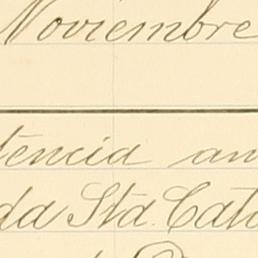 Noviembre
tencia an
da Sta. Cata